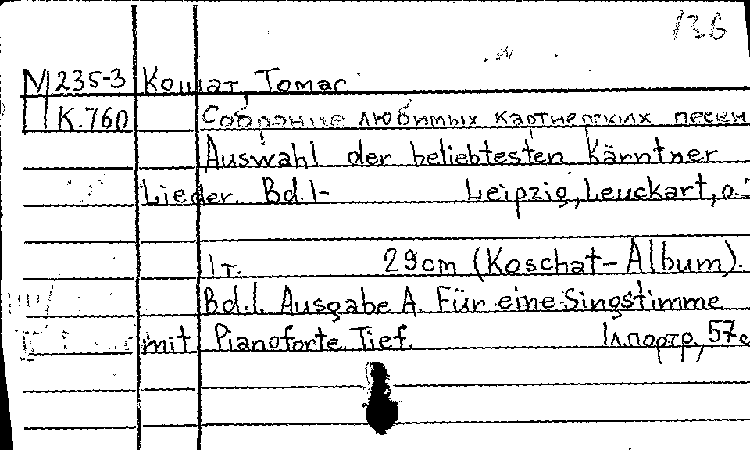 136
М 235-3 Кошат, Томас
К.760 Собрание любимых картнерских песен
Auswahl der beliebtesten Kärntner
Lieder Bd.1- Leipzig, Leuckart, o.
1т. 29cm (Koschat-Album).
Bd.1. Ausgabe A. Für eine Singstimme
mit Pianoforte Tief. 1л.портр, 57с